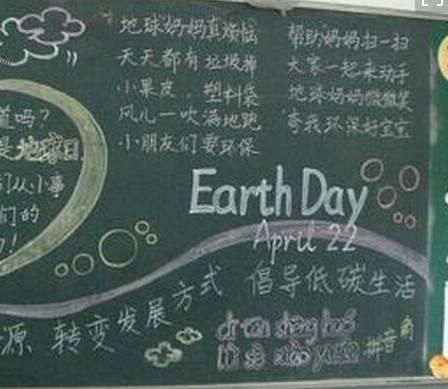 地球妈妈真烦恼
天天都有垃圾掉
小果皮，塑料袋
风儿一吹满地跑
小朋友们要环保
帮助妈妈扫一扫
大家一起来动手
地球妈妈微微笑
夸我环保好宝宝
道吗？
是地球日
们从小事
们的
Earth Day
April 22
源 转变发展方式 倡导低碳生活
拼音角